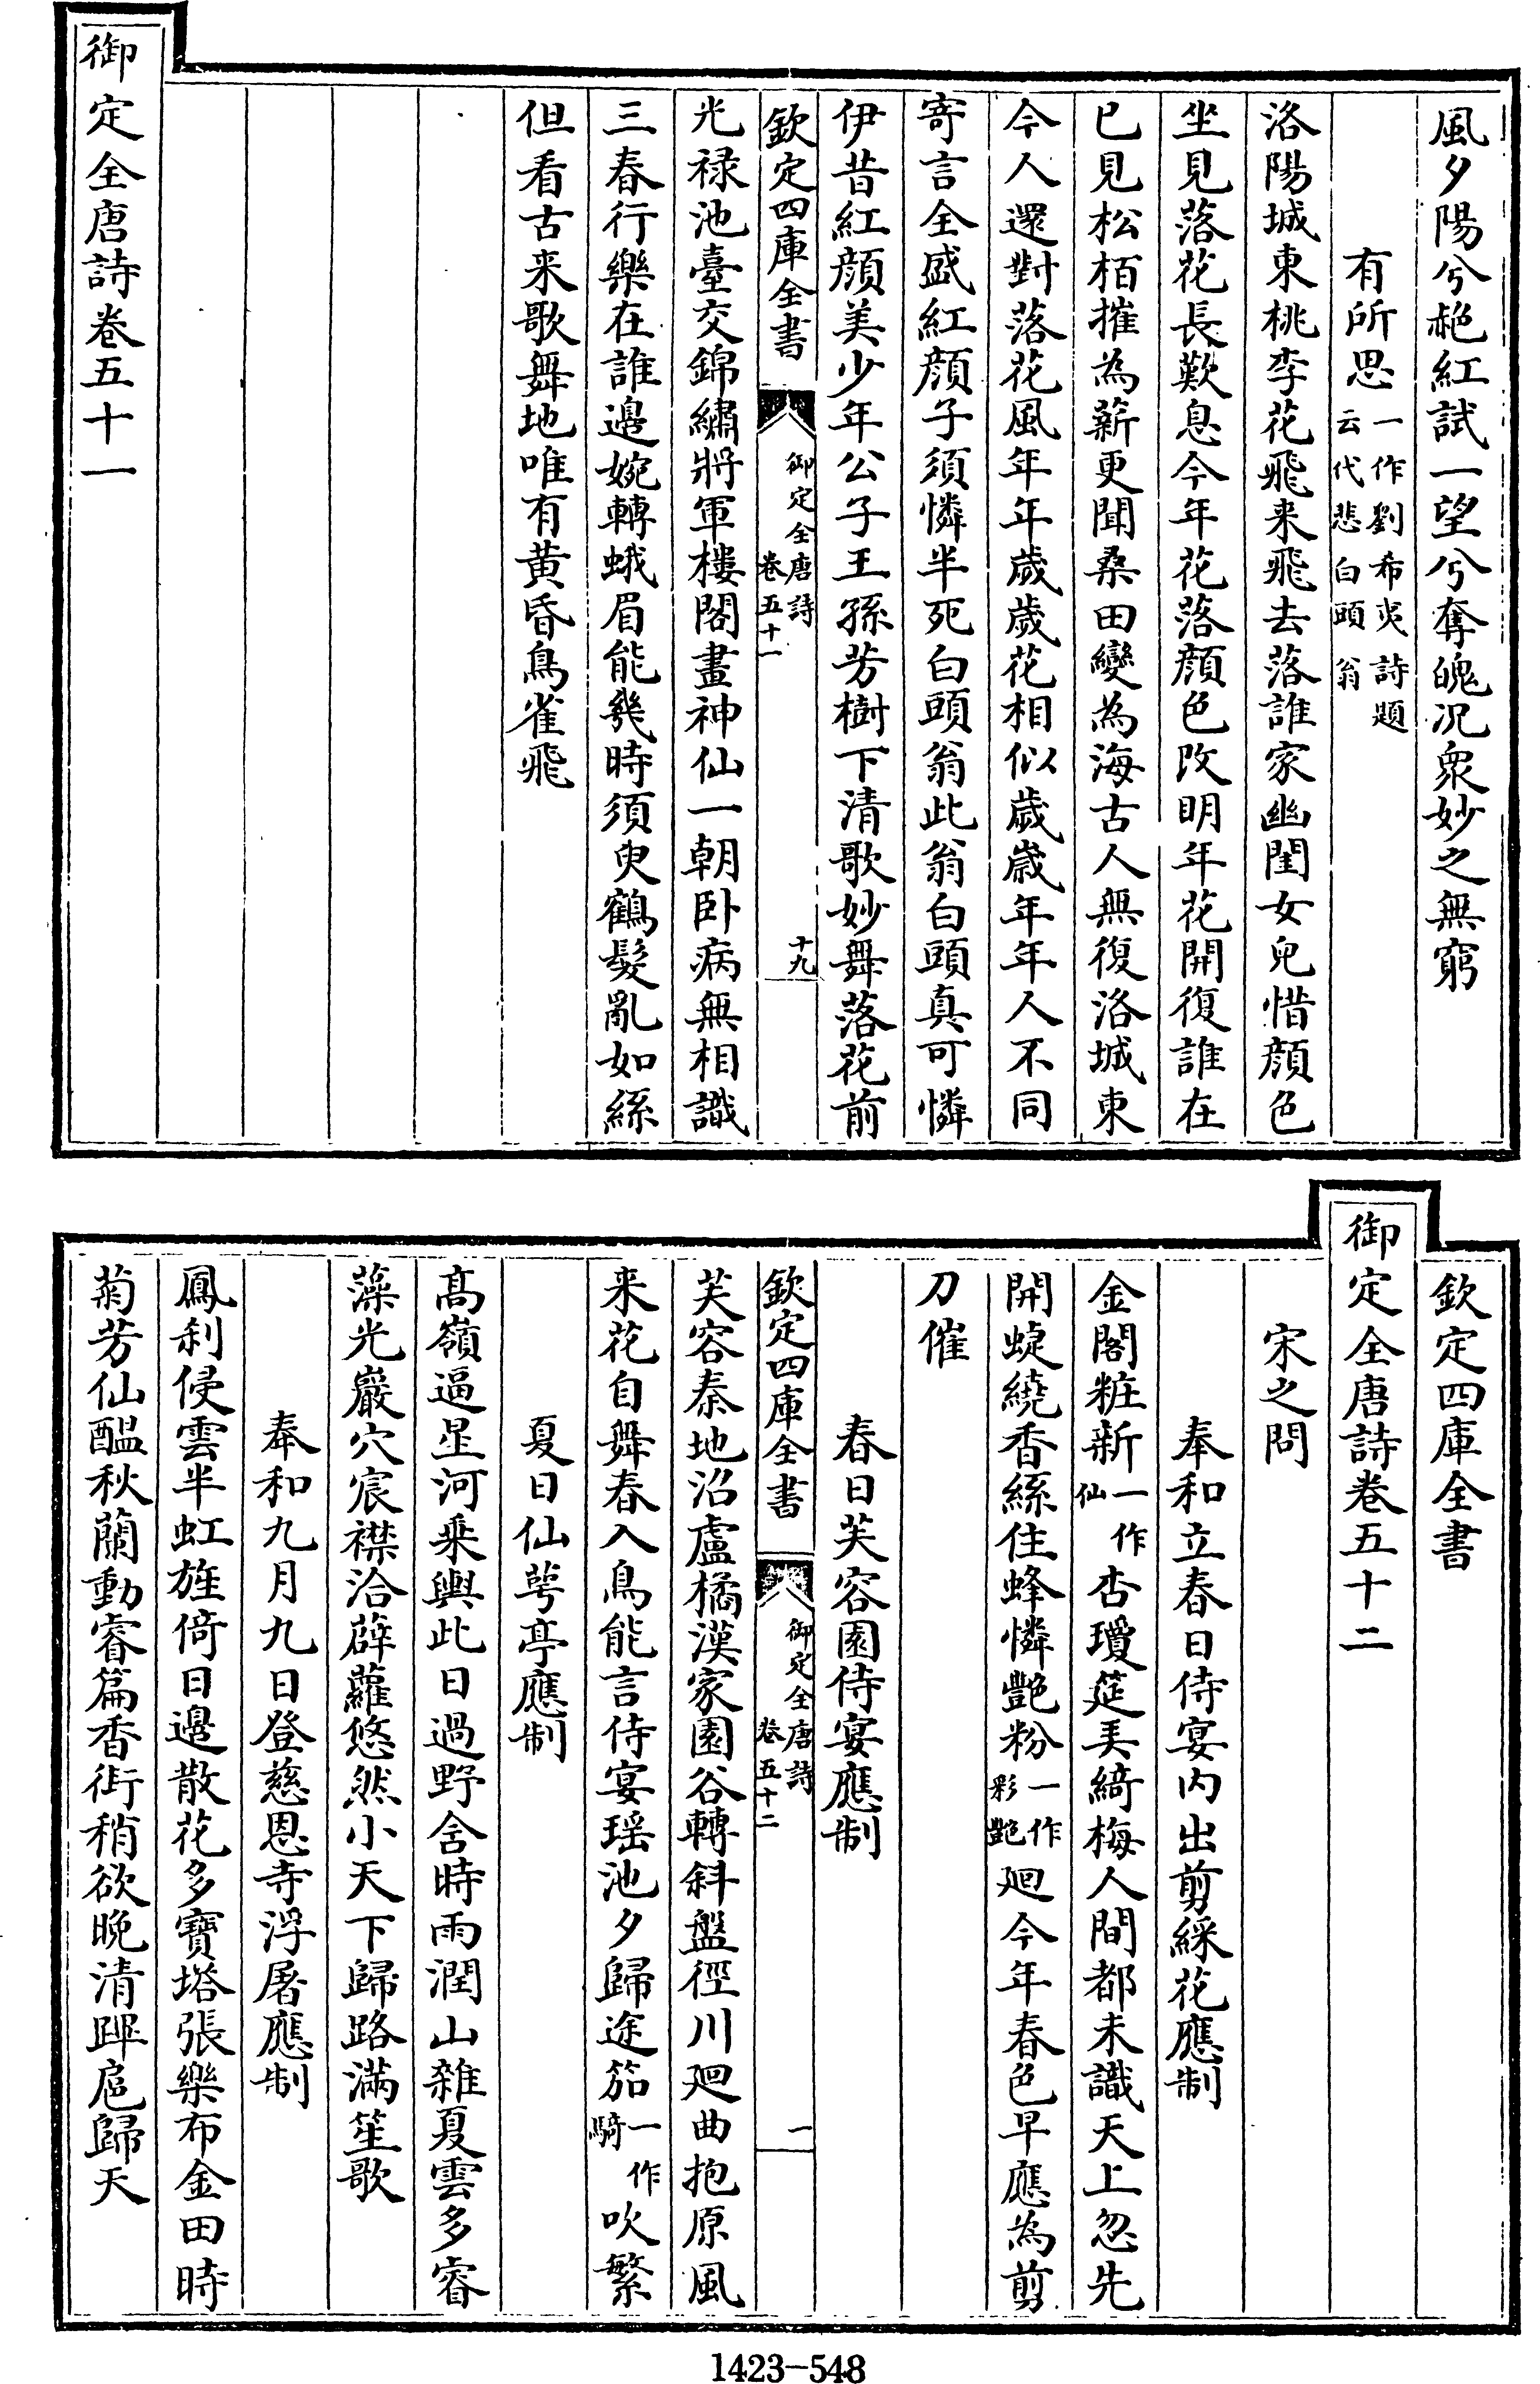 風夕陽兮艴紅試一望兮奪魄况衆妙之無窮
有所思一作劉希夷詩題云代悲白頭翁
洛陽城東桃李花飛来飛去落誰家幽閨女兒惜顔色
坐見落花長歎息今年花落顔色改明年花開復誰在
已見松栢摧為薪更聞桑田變為海古人無復洛城東
今人還對落花風年年歲歲花相似歲歲年年人不同
寄言全盛紅顔子須憐半死白頭翁此翁白頭真可憐
伊昔紅顔美少年公子王孫芳樹下清歌妙舞落花前
欽定四庫全書
御定全唐詩
卷五十一
十九
光禄池臺交錦繡將軍樓閣畫神仙一朝卧病無相識
三春行樂在誰邊婉轉蛾眉能幾時須臾鶴髮亂如絲
但看古来歌舞地唯有黄昏鳥雀飛
御定全唐詩卷五十一
欽定四庫全書
御定全唐詩卷五十二
宋之問
奉和立春日侍宴内出剪綵花應制
金閣粧新一作仙杏瓊筵美綺梅人間都未識天上忽先
開蜨繞香絲住蜂憐艶粉一作彩艶廻今年春色早應為剪
刀催
春日芙容園侍宴應制
欽定四庫全書
御定全唐詩
卷五十二
一
芙容秦地沼盧橘漢家園谷轉斜盤徑川廻曲抱原風
来花自舞春入鳥能言侍宴瑶池夕歸途笳一作騎吹繁
夏日仙萼亭應制
髙嶺逼星河乗輿此日過野含時雨潤山雜夏雲多睿
藻光巖穴宸襟洽薜蘿悠然小天下歸路滿笙歌
奉和九月九日登慈恩寺浮屠應制
鳳刹侵雲半虹旌倚日邊散花多寶塔張樂布金田時
菊芳仙醖秋蘭動睿篇香街稍欲晚清蹕扈歸天
1423-548